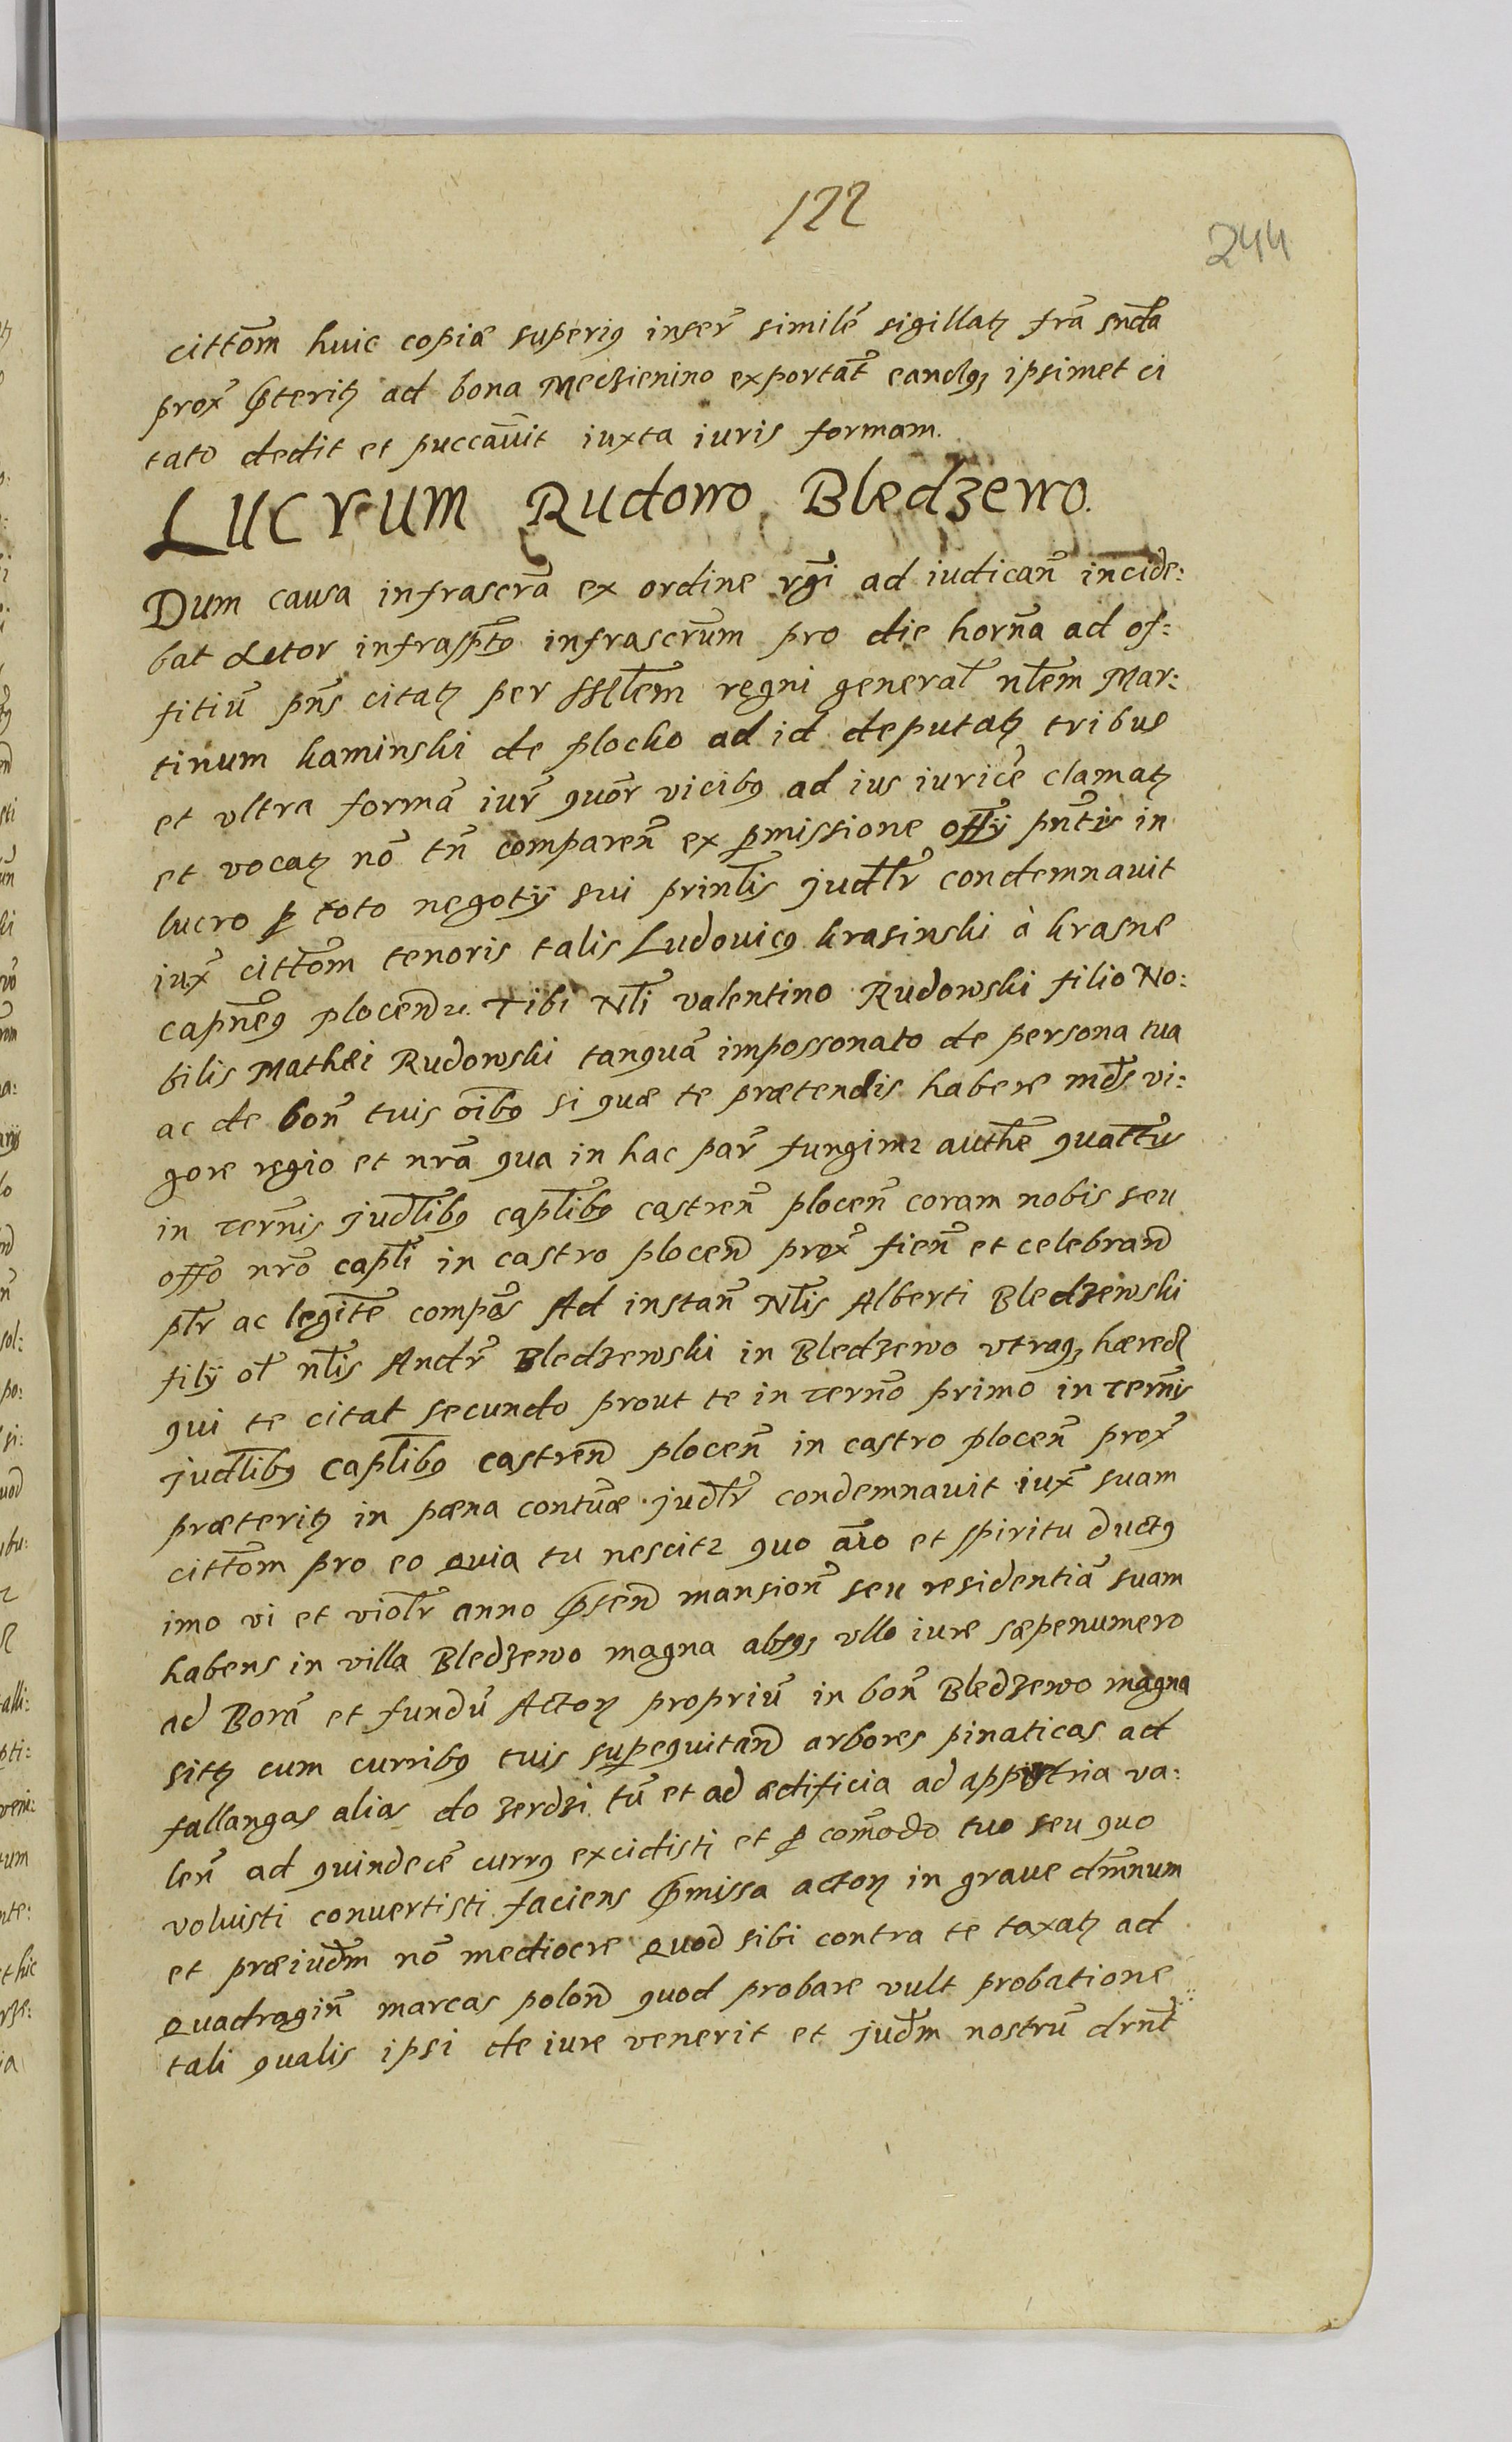 122
244
cittōm huic copiæ superiꝯ inser̃ similẽ sigillatꝫ frã sñda
prox̃ p̃teritꝫ ad bona Medzienino exportat̃ eandqꝫ ipsimet ci
tato dedit et puccavit iuxta iuris formam.
Lucrum Rudowo Bledzewo.
Dum causa infrascrã ex ordine rg̃i ad iudicañ incide:
bat Actor infrasptꝯ infrascrūm pro die horña ad of:
fitiū pñs citatꝫ per ministłem regni generał nłem Mar:
tinum Kaminski de plocko ad id deputatꝫ tribus
et vltra formã iur̃ quor̃ vicibꝯ ad ius iuricẽ clamatꝫ
et vocatꝫ nõ tñ compareñ ex p̱missione offy pñtis in
lucro ꝑ toto negotÿ sui prinłis judłr condemnauit
iux̃ cittōm tenoris talis Ludouicꝯ Krasinski à Krasne
capñeꝯ plocenẜ. Tibi Nłi valentino Rudowski filio No:
bilis Mathæi Rudowski tanquã impossonato de persona tua
ac de boñ tuis oībꝯ si quæ te prætendis habere mds vi:
gore regio et nrã qua in hac par̃ fungimꝛ authẽ quattus
in terñis judłibꝯ capłibꝯ castreñ ploceñ coram nobis seu
offo nrõ capłi in castro plocen̄ prox̃ fieñ et celebran̄
płr ac legitẽ compãs Ad instañ Nłis Alberti Bledzewski
filÿ oł nłis Andr̃ Bledzewski in Bledzewo vtraqꝫ hæred̃
qui te citat secundo prout te in terñõ primo in terñis
judłibꝯ capłibꝯ castren̄ ploceñ in castro ploceñ prox̃
præteritꝫ in pæna contūæ judłr condemnauit iux̃ suam
cittōm pro eo quia tu nescitꝛ quo aĩo et spiritu ductꝯ
imo vi et viołr anno p̃sen̄ mansioñ seu residentiã suam
habens in villa Bledzewo magna absqꝫ vllo iure sæpenumero
ad Borã et fundū Actorꝫ propriū in boñ Bledzewo magna
sitꝫ cum curribꝯ tuis supequitan̄ arbores pinaticas ad
fallangas alias do zerdzi tū et ad ædificia ad va:
leñ ad quindecẽ currꝯ excidisti et ꝑ com̃odo tuo seu quo
voluisti conuertisti faciens p̃missa actorꝫ in graue dm̃num
et præiudm̃ nõ mediocre quod sibi contra te taxatꝫ ad
quadragiñ marcas polon̄ quod probare vult probatione
tali qualis ipsi de iure venerit et judm̃ nostrū drñt